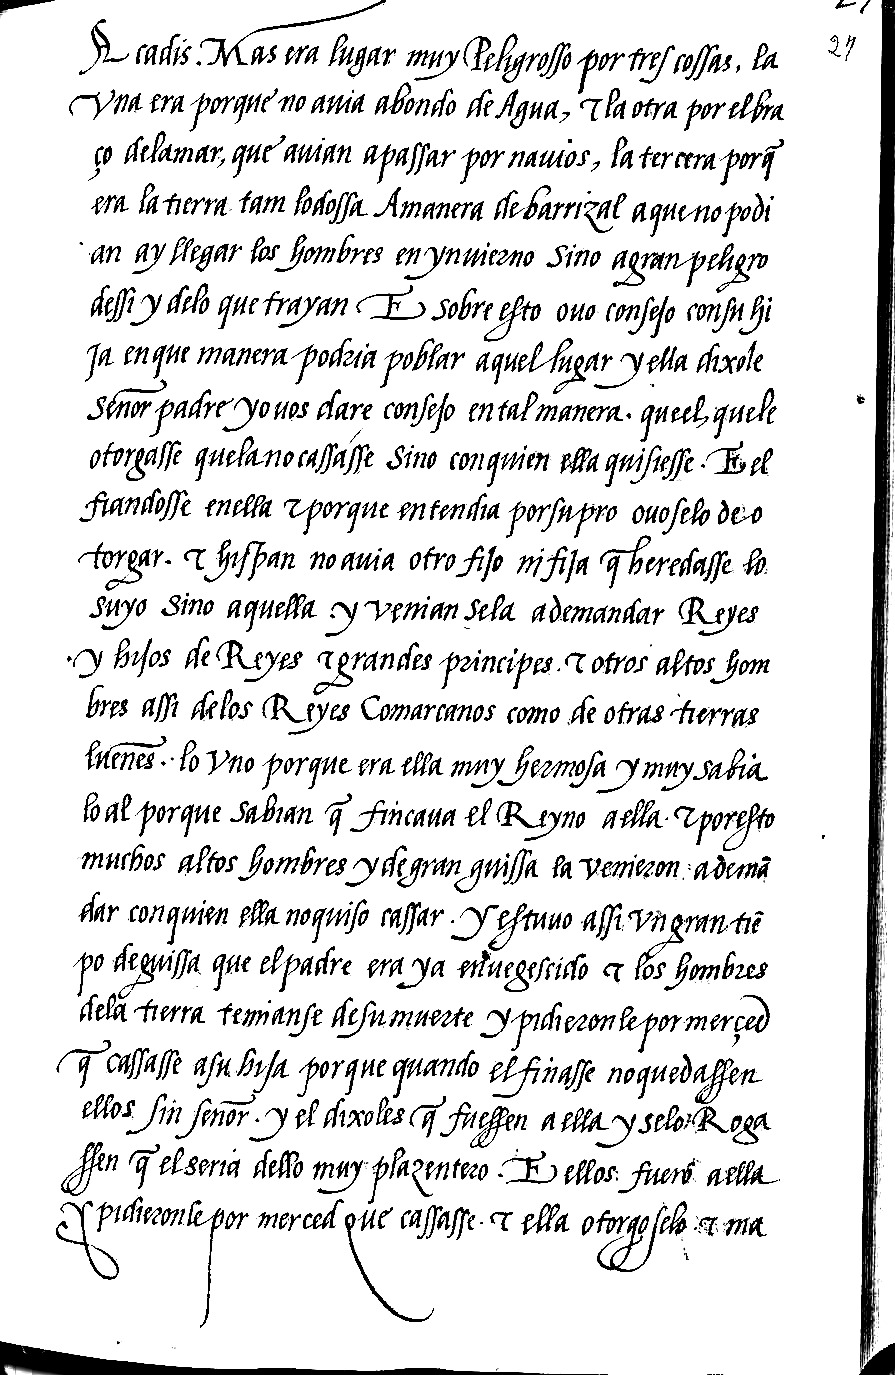 27
A cadis. Mas era lugar muy Peligrosso por tres cossas, la
Vna era porque no auia abondo de Agua, τ la otra por el bra
ço delamar, que auian apassar por nauios, la tercera porq̃
era la tierra tam lodossa Amanera de barrizal aque no podi
an ay llegar los hombres en ynuierno Sino agran peligro
dessi y delo que trayan E sobre esto ouo consejo consu hi
ja en que manera podria poblar aquel lugar y ella dixole
Señor padre yo uos dare consejo en tal manera. que el, quele
otorgasse quela no cassasse Sino con quien ella quisiesse. E el
fiandosse enella τ porque entendia por su pro ouo selo de o
torgar. τ hispan no auia otro fijo ni fija q̃ heredasse lo
suyo Sino aquella y venian sela ademandar Reyes
y hijos de Reyes τ grandes principes. τ otros altos hom
bres assi delos Reyes Comarcanos como de otras tierras
lueñes. lo Vno porque era ella muy hermosa y muy sabia
lo al porque sabian q̃ fincaua el Reyno aella. τ por esto
muchos altos hombres y de gran guissa la venieron ademã
dar con quien ella no quiso cassar. Y estuuo assi vn gran tiẽ
po deguissa que el padre era ya enuegescido τ los hombres
dela tierra temianse desu muerte y pidieronle por merçed
q̃ cassasse asu hija porque quando el finasse no quedassen
ellos sin señor. y el dixoles q̃ fuessen a ella y selo Roga
ssen q̃ el seria dello muy plazentero. E ellos fuerõ aella
Y pidieronle por merced que cassasse. τ ella otorgoselo τ ma